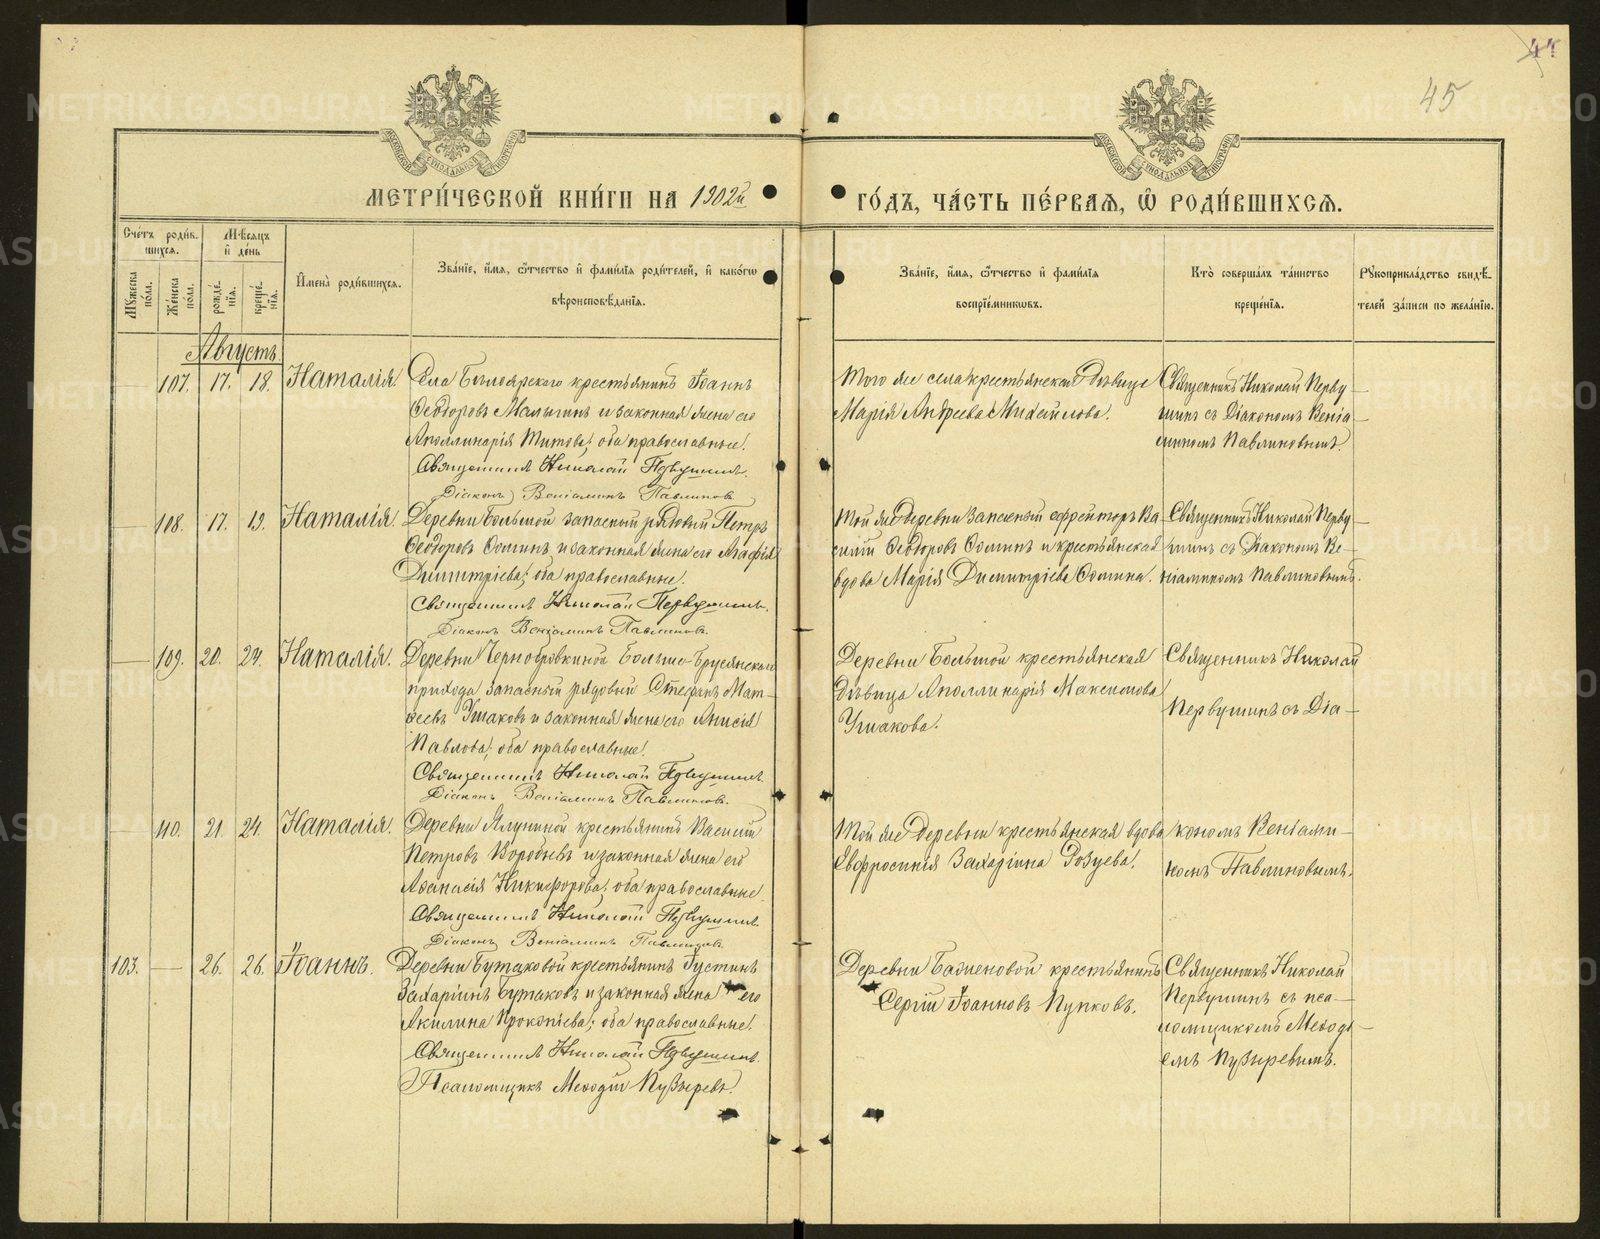 44
45
МЕТРИ́ЧЕСКОЙ КНИ́ГИ НА 1902й ГО́ДЪ, ЧА́СТЬ ПЕ́РВАѦ, Ѡ РОДИ́ВШИХСѦ.
Сче́тъ роди́вшихсѧ.
Мꙋ́жеска по́ла.
Же́нска по́ла.
Мѣ́сѧцъ и де́нь
рожде́нїѧ.
креще́нїѧ.
И҆мена̀ роди́вшихсѧ.
Зва́нїе, и҆́мѧ, ѻ҆́тчество и҆ фами́лїѧ роди́телей, и҆ како́гѡ
вѣроисповѣ́данїѧ.
Зва́нїе, и҆́мѧ, ѻ҆́тчество и҆ фами́лїѧ
воспрїе́мникѡвъ.
Кто̀ соверша́лъ та́инство
креще́нїѧ.
Рꙋкоприкла́дство свидѣ́-
телей за́писи по жела́нїю.
Августъ.
107. 17. 18. Наталія.
Села Белоярского крестьянинъ Іоаннъ
Ѳеодоровъ Малыгинъ и законная жена его
Аполлинарія Титова; оба православные.
Священникъ Николай Первушинъ.
Діаконъ Веніаминъ Павлиновъ.
Того же села крестьянская дѣвица
Марія Андреева Михайлова.
Священникъ Николай Перву-
шинъ съ Діакономъ Веніа-
миномъ Павлиновымъ.
108. 17. 19. Наталія.
Деревни Большой запасный рядовой Петръ
Ѳеодоровъ и законная жена его Агафія
Димитріева; оба православные.
Священникъ Николай Первушинъ.
Діаконъ Веніаминъ Павлиновъ.
Той же деревни запасный ефрейторъ Ва-
силій Ѳеодоровъ и крестьянская
вдова Марія Димитріева
Священникъ Николай Перву-
шинъ съ Діакономъ Ве-
ніаминомъ Павлиновымъ.
109. 20. 24. Наталія.
Деревни Чернобровкиной Больше-Брусянского
прихода запасный рядовой Стефанъ Мат-
ѳеевъ Ушаковъ и законная жена его Анисія
Павлова; оба православные.
Священникъ Николай Первушинъ.
Діаконъ Веніаминъ Павлиновъ.
Деревни Большой крестьянская
дѣвица Аполлинарія Максимова
Ушакова.
Священникъ Николай
Первушинъ съ Діа-
110. 21. 24. Наталія.
Деревни Ялуниной крестьянинъ Василій
Петровъ Воробьевъ и законная жена его
Аѳанасія Никифорова; оба православные.
Священникъ Николай Первушинъ.
Діаконъ Веніаминъ Павлиновъ.
Той же деревни крестьянская вдова
Евфросинія Захаріина
кономъ Веніами-
номъ Павлиновымъ.
103. — 26. 26. Іоаннъ.
Деревни Бутаковой крестьянинъ Іустинъ
Захаріинъ Бутаковъ и законная жена его
Акилина Прокопіева; оба православные.
Священникъ Николай Первушинъ.
Псаломщикъ Меѳодій Пузыревъ.
Деревни Баженовой крестьянинъ
Сергій Іоанновъ Пупковъ.
Священникъ Николай
Первушинъ съ пса-
ломщикомъ Меѳоді-
емъ Пузыревымъ.
METRIKI.GASO-URAL.RU